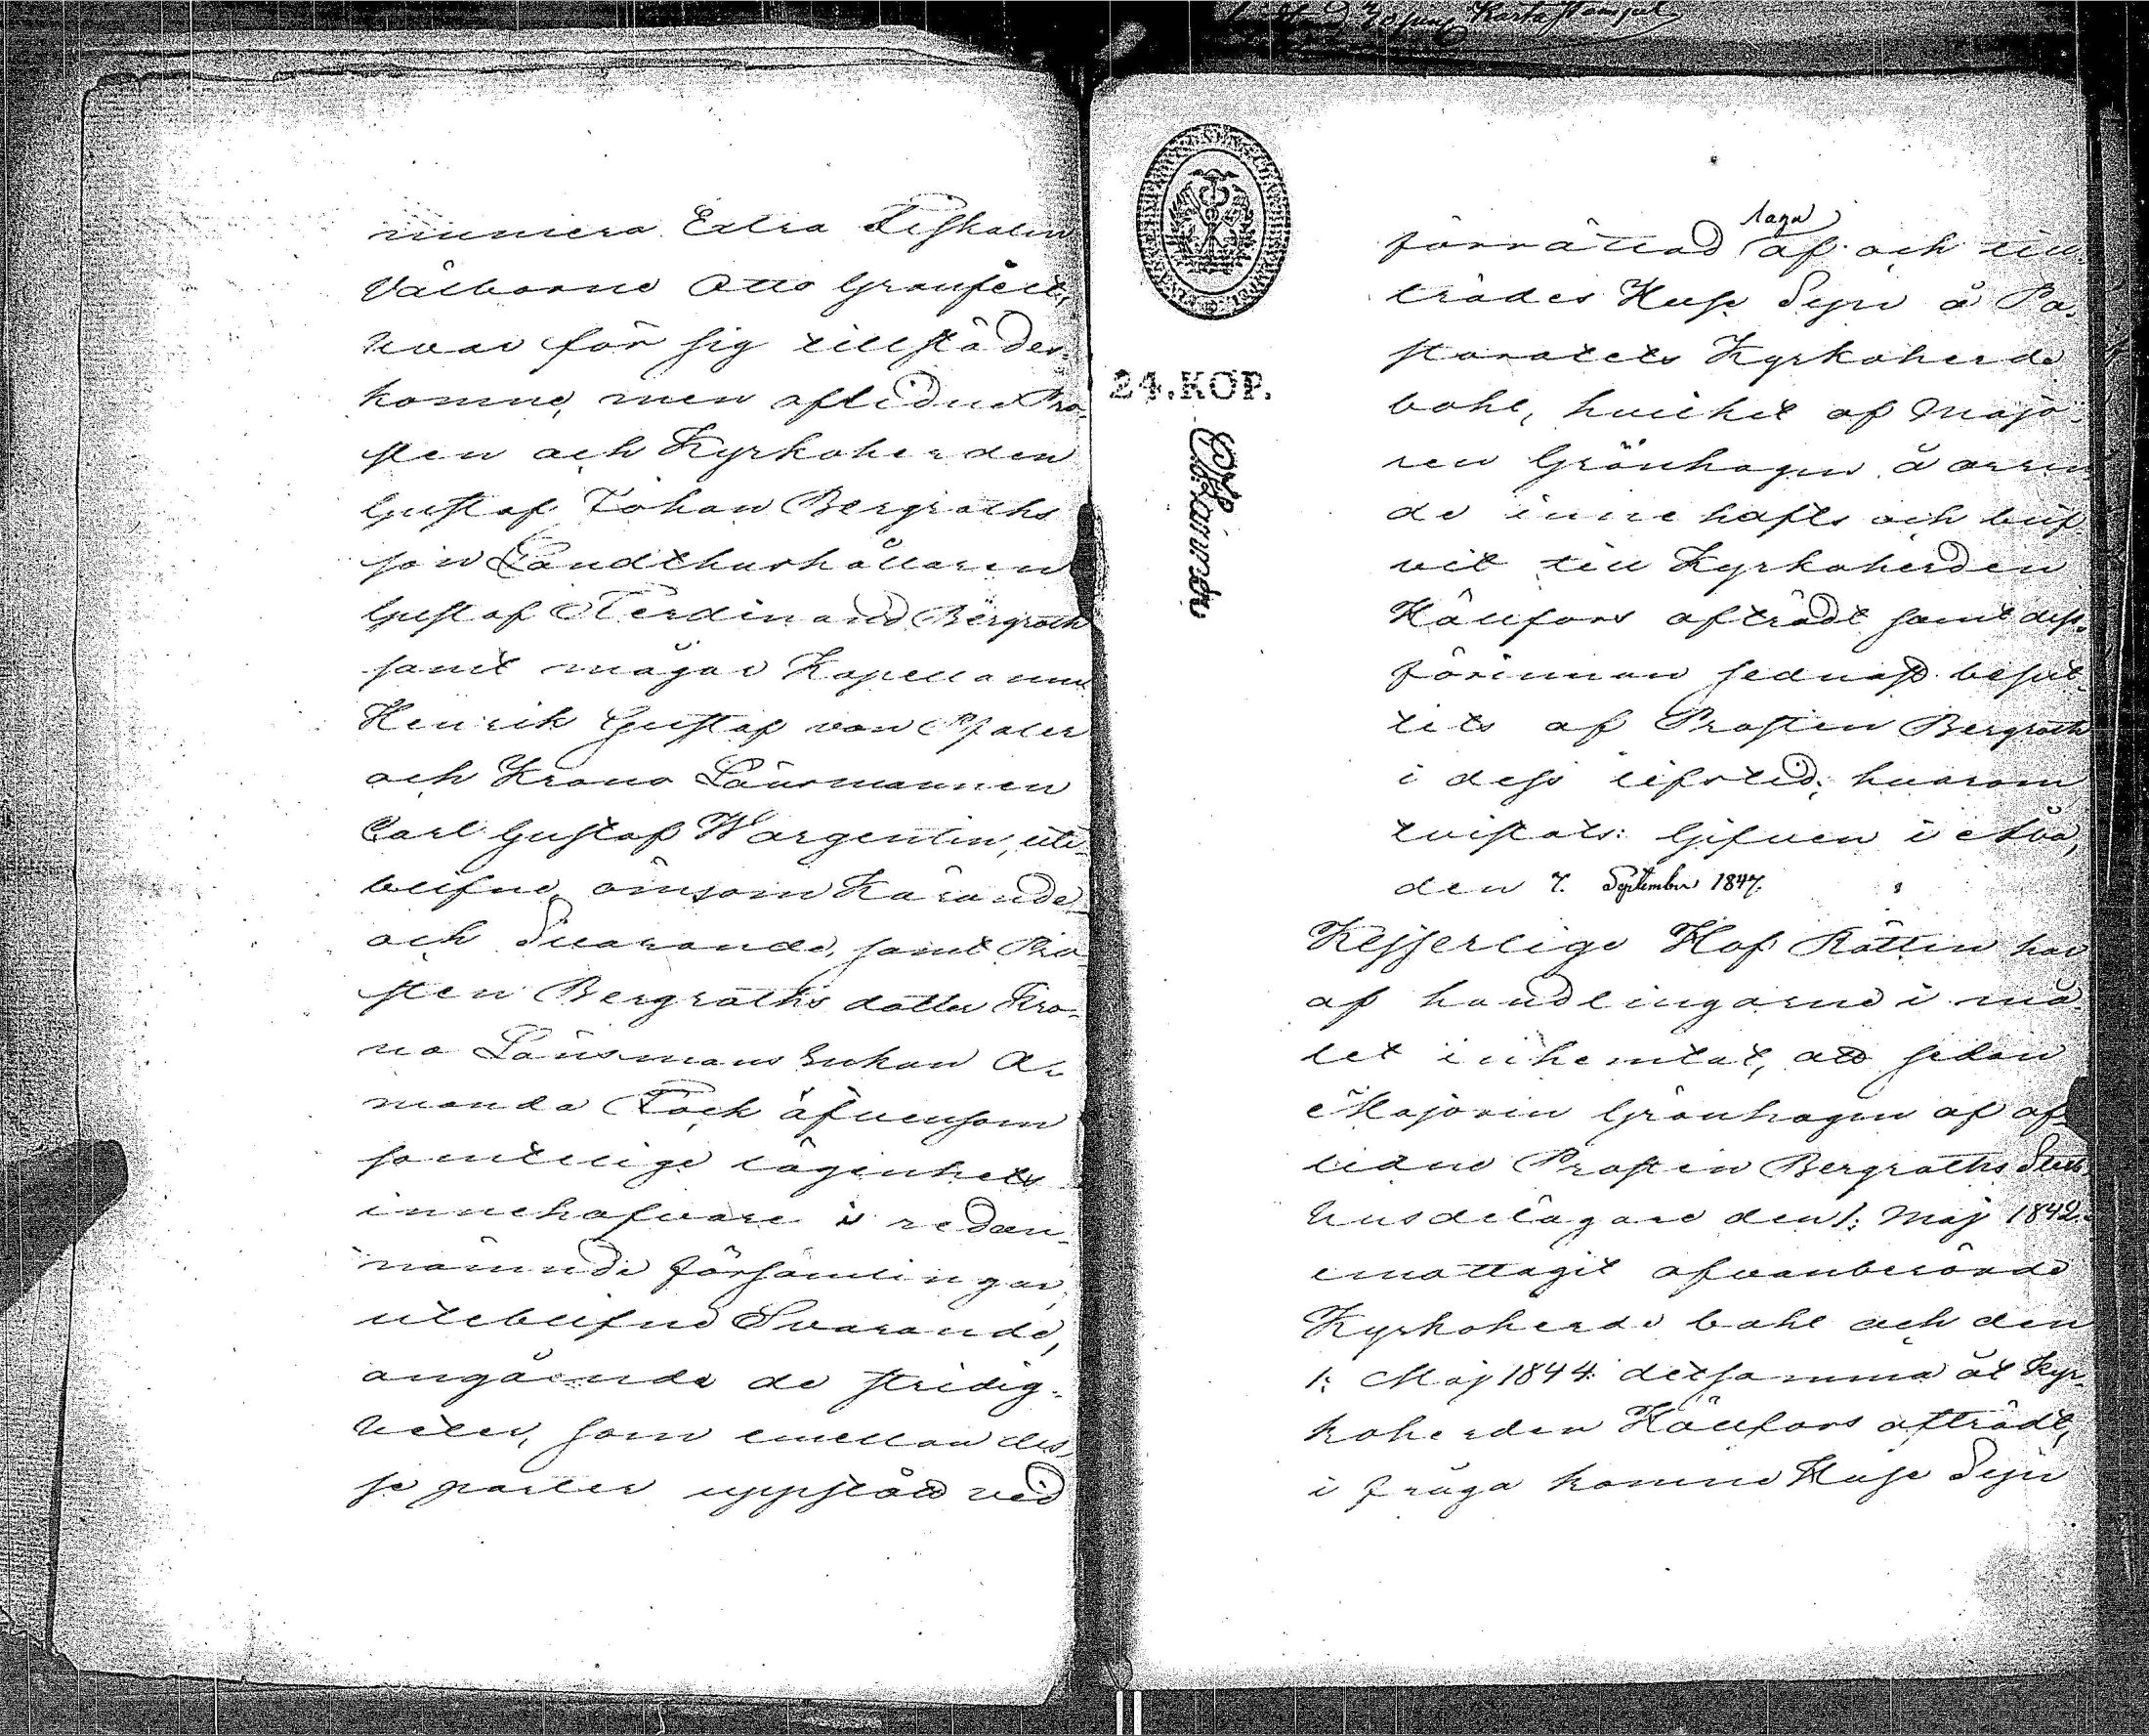 numera Extra Fiskalen
Välborne Otto Granfelt,
hvar för sig tillstädes
komne, men aflidne Pro-
sten och Kyrkoherden
Gustaf Johan Bergroths
son Landthushållaren
Gustaf Ferdinand Bergroth
samt mågar Kapellanen
Henrik Gustaf von Pfaler
och Krono Länsmannen
Carl Gustaf Wargentin, ute-
blifne, ömsom Kärande
och Svarande, samt Pro-
sten Bergroths dotter Kro-
no Länsmans Enkan A-
manda Fock äfvensom
samtelige lägenhets
innehafvare i redan-
nämnde församlingar,
uteblifne Svarande,
angående de stridig-
heter, som emellan des-
se parter uppstått vid
24.KOP.
förrättad laga af och till-
trädes Huse Syn å Pa-
storatets Kyrkoherde
bohl, hvilket af Majo-
ren Grönhagen å arren-
de innehafts och blif-
vit till Kyrkoherden
Hällfors afträdt samt dess-
förinnan sednast besut-
tits af Prosten Bergroth
i dess lifstid; hvarom
tvistats: Gifven i Åbo,
den 7. September 1847.
Kejserlige Hof Rätten har
af handlingarne i må-
let inhemtat, att sedan
Majoren Grönhagen af af-
lidne Prosten Bergroths Sterb-
husdelägare den 1: Maj 1842
emottagit ofvanberörde
Kyrkoherde bohl och den
1: Maj 1844 detsamma åt Kyr-
koherden Hällfors afträdt,
i fråga komne Huse Syn